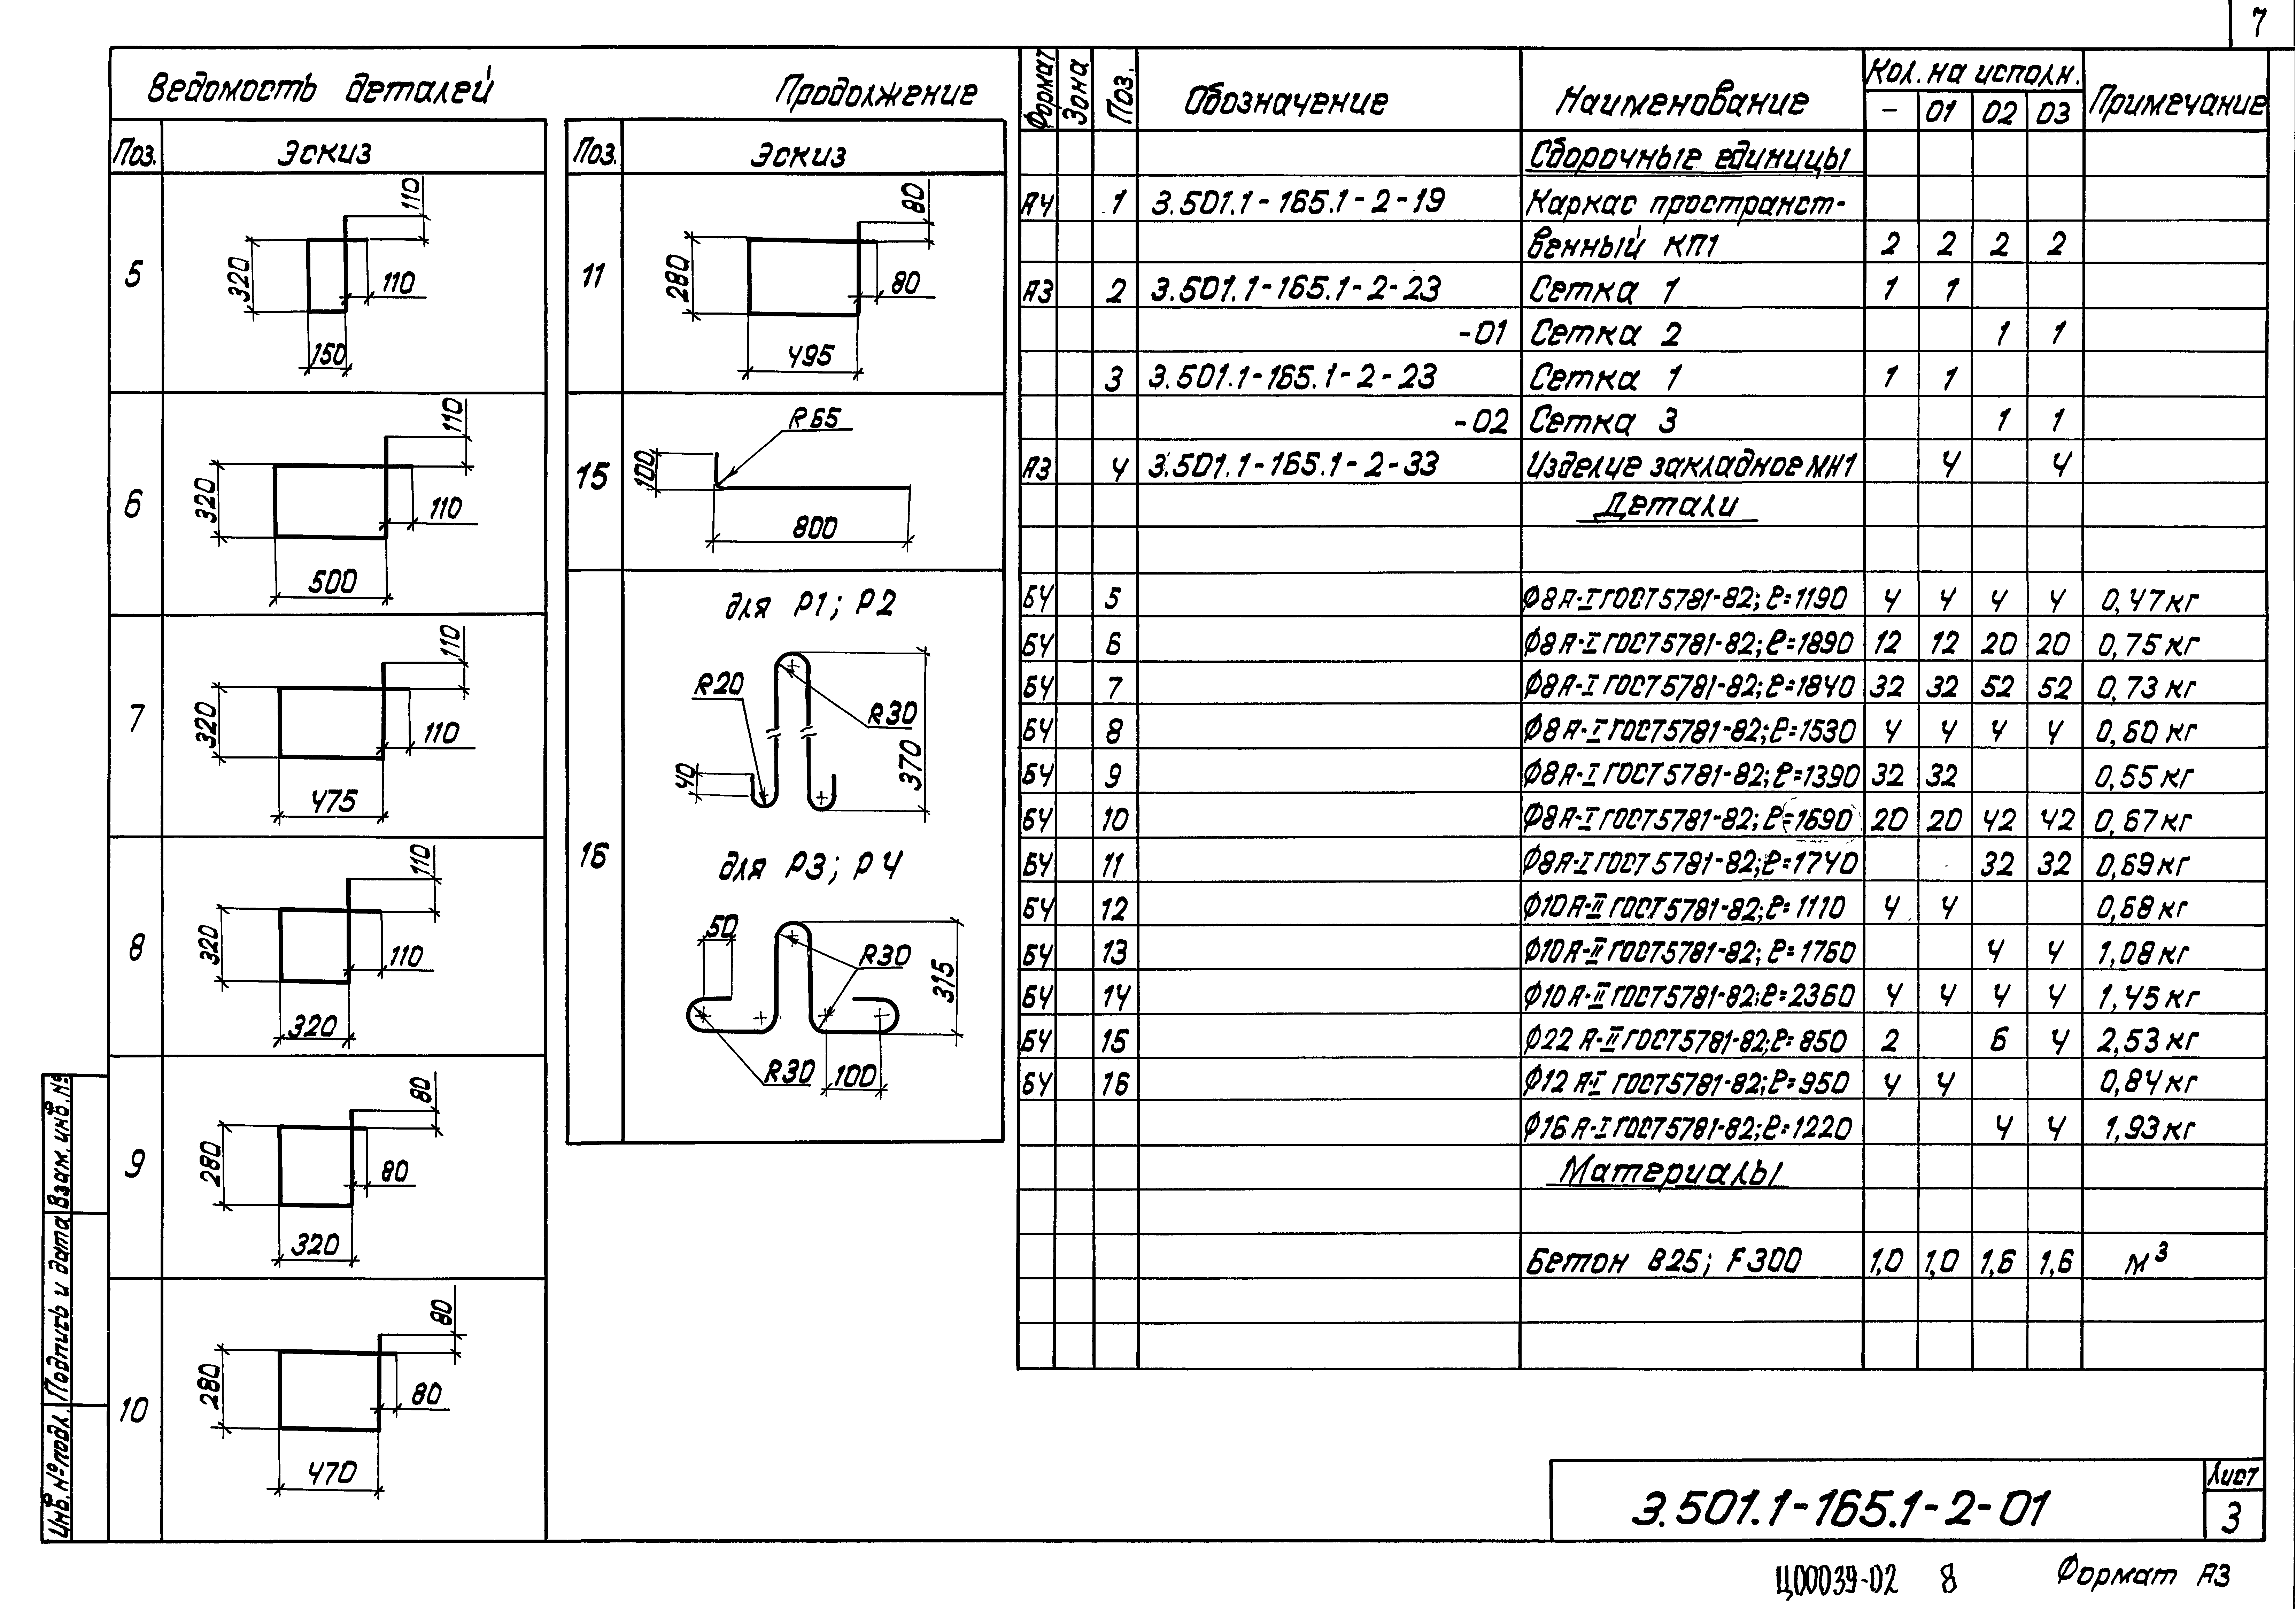 7
Ведомость деталей
Продолжение
Поз. Эскиз
5
110
320
110
150
6
110
320
110
500
7
110
320
110
475
8
110
320
110
320
9
80
280
80
320
10
80
280
80
470
Поз. Эскиз
11
80
280
80
495
15
R65
100
800
16
для Р1; Р2
R20
R30
40
370
для Р3; Р4
50
R30
315
R30
100
Формат Зона Поз. Обозначение Наименование Кол. на исполн. Примечание
- 01 02 03
Сборочные единицы
А4 1 3.501.1-165.1-2-19 Каркас пространст-
венный КП1 2 2 2 2
А3 2 3.501.1-165.1-2-23 Сетка 1 1 1
-01 Сетка 2 1 1
3 3.501.1-165.1-2-23 Сетка 1 1 1
-02 Сетка 3 1 1
А3 4 3.501.1-165.1-2-33 Изделие закладное МН1 4 4
Детали
БЧ 5 Ф8А-I ГОСТ 5781-82; ℓ=1190 4 4 4 4 0,47кг
БЧ 6 Ф8А-I ГОСТ 5781-82; ℓ=1890 12 12 20 20 0,75кг
БЧ 7 Ф8А-I ГОСТ 5781-82; ℓ=1840 32 32 52 52 0,73кг
БЧ 8 Ф8А-I ГОСТ 5781-82; ℓ=1530 4 4 4 4 0,60кг
БЧ 9 Ф8А-I ГОСТ 5781-82; ℓ=1390 32 32 0,55кг
БЧ 10 Ф8А-I ГОСТ 5781-82; ℓ=1690 20 20 42 42 0,67кг
БЧ 11 Ф8А-I ГОСТ 5781-82; ℓ=1740 32 32 0,69кг
БЧ 12 Ф10А-II ГОСТ 5781-82; ℓ=1110 4 4 0,68кг
БЧ 13 Ф10А-II ГОСТ 5781-82; ℓ=1760 4 4 1,08кг
БЧ 14 Ф10А-II ГОСТ 5781-82; ℓ=2360 4 4 4 4 1,45кг
БЧ 15 Ф22 А-II ГОСТ 5781-82; ℓ=850 2 6 4 2,53кг
БЧ 16 Ф12 А-I ГОСТ 5781-82; ℓ=950 4 4 0,84кг
Ф16 А-I ГОСТ 5781-82; ℓ=1220 4 4 1,93кг
Материалы
Бетон В25; F300 1,0 1,0 1,6 1,6 м³
Инв. № подл. Подпись и дата Взам. инв. №
3.501.1-165.1-2-01
Лист
3
Ц00039-02 8 Формат А3